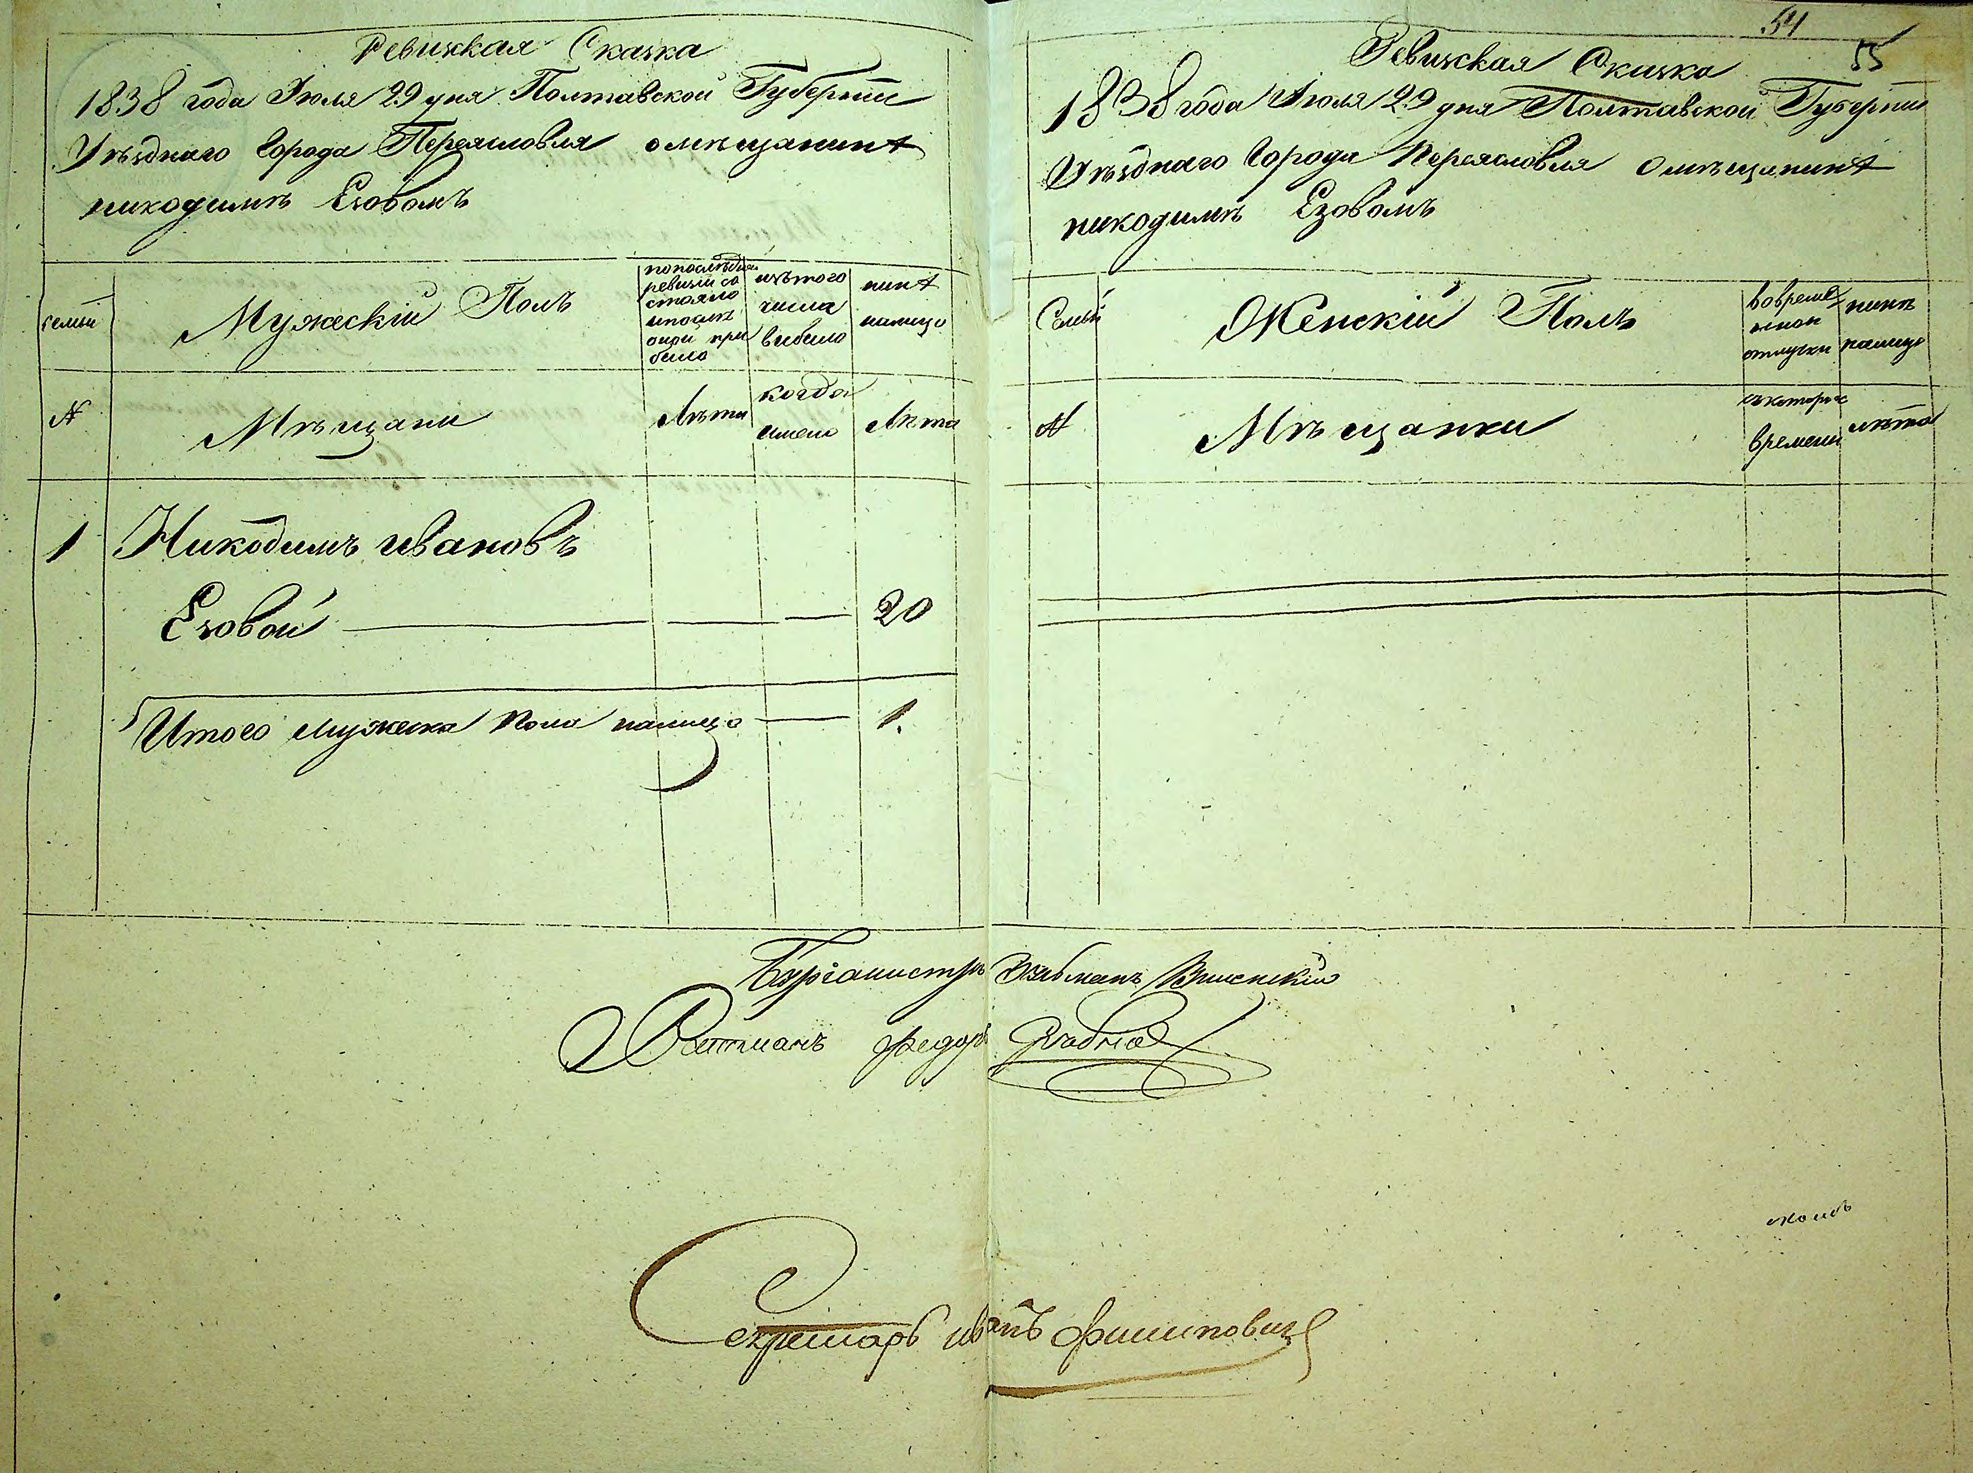 Ревизская Сказка
1838 года Июля 29 дня Полтавской Губернии
Уѣзднаго Города Переясловля омѣщанинѣ
никодимѣ Езовомъ
семьи
Мужескій Полъ
попослѣдней
ревизіи со
стояло
ипослѣ
оной при
было
изътого
числа
выбыло
нинѣ
налицо
№
Мѣщани
Лѣта
когда
имено
Лѣта
1
Никодимъ ивановъ
Езовой
20
Итого мужеска пола налицо
1.
54
55
Ревизская Сказка
1838 года Июля 29 дня Полтавской Губерніи
Уѣзднаго Города Переясловля омѣщанинѣ
никодимѣ Езовомъ
Семьи
Женскій Полъ
вовремен
ной
отлучки
нинѣ
налицо
№
Мѣщанки
съкоторого
времени
лѣта
Бургомистръ
Ратманъ федоръ
Секретарь иванъ Филиповичъ